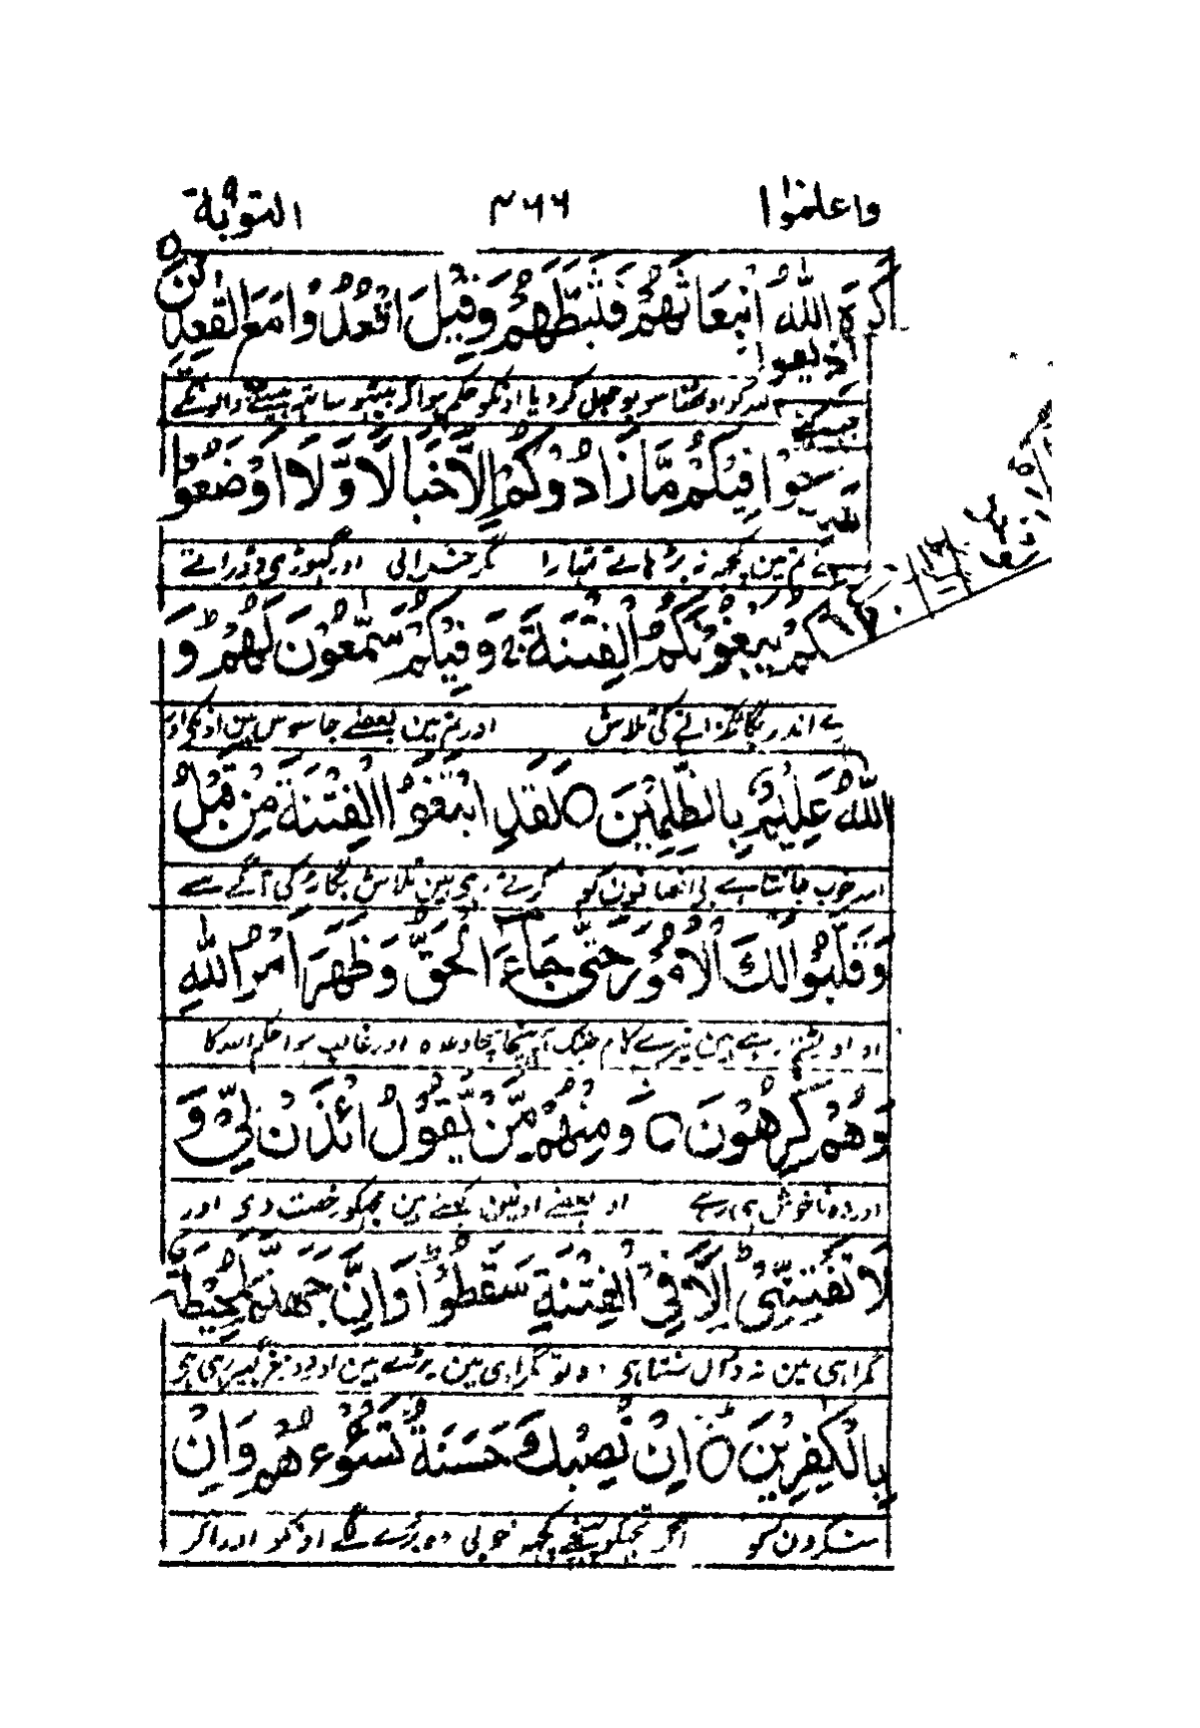 واعلموا ۳۶۶ التوبة ۹
كَرِهَ اللّٰهُ انْۢبِعَاثَهُمْ فَثَبَّطَهُمْ وَقِيْلَ اقْعُدُوْا مَعَ الْقٰعِدِيْنَ ۝
اونکو حکم ہوا کہ بیٹھو ساتھ بیٹھنے والونکے
فِيْكُمْ مَّا زَادُوْكُمْ اِلَّا خَبَالًا وَّلَا۟اَوْضَعُوْا
تم مین کچھ نہ بڑھاتے تمہارا مگر خرابی اور گھوڑی دوڑاتے
كُمْ يَبْغُوْنَكُمُ الْفِتْنَةَ ۚ وَفِيْكُمْ سَمّٰعُوْنَ لَهُمْ ؕ وَ
ے اندر بگاڑ کروانے کی تلاش اور تم مین بعضے جاسوس ہین اونکی اور
اللّٰهُ عَلِيْمٌۢ بِالظّٰلِمِيْنَ ۝ لَقَدِ ابْتَغَوُا الْفِتْنَةَ مِنْ قَبْلُ
اسہ خوب جانتا ہے بی انصافون کو کرتے رہی ہین تلاش بگاڑ کی آگے سے
وَقَلَّبُوْا لَكَ الْاُمُوْرَ حَتّٰى جَآءَ الْحَقُّ وَظَهَرَ اَمْرُ اللّٰهِ
رہے ہین تیرے کام جبتک آ پہنچا سچا وعدہ اور غالب ہوا حکم اللہ کا
وَهُمْ كٰرِهُوْنَ ۝ وَمِنْهُمْ مَّنْ يَّقُوْلُ ائْذَنْ لِّيْ وَ
اور وہ ناخوش ہی رہے اور بعضے اونمین کہتے ہین مجھکو رخصت دی اور
لَا تَفْتِنِّيْ ؕ اَلَا فِي الْفِتْنَةِ سَقَطُوْا ؕ وَاِنَّ جَهَنَّمَ لَمُحِيْطَةٌۢ
گمراہی مین نہ ڈال سنتا ہی وہ تو گمراہی مین پڑے ہین اور دوزخ گھیر رہی ہی
بِالْكٰفِرِيْنَ ۝ اِنْ تُصِبْكَ حَسَنَةٌ تَسُؤْهُمْ ۚ وَاِنْ
منکرون کو اگر تجھکو پہنچے کچھ خوبی وہ بری لگے اونکو اور اگر